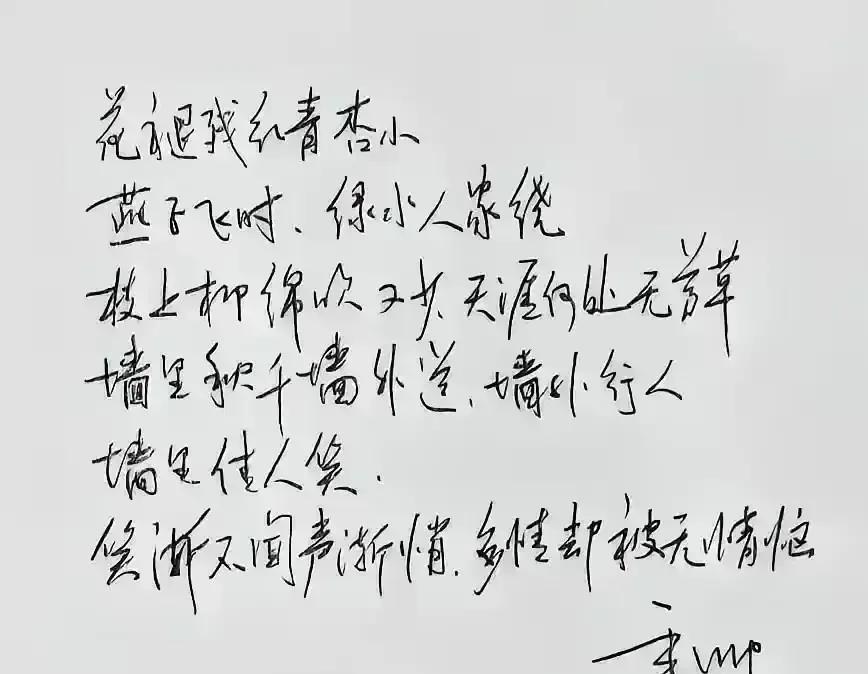 花褪残红青杏小
燕子飞时、绿水人家绕
枝上柳绵吹又少,天涯何处无芳草
墙里秋千墙外道,墙外行人
墙里佳人笑.
笑渐不闻声渐悄,多情却被无情恼